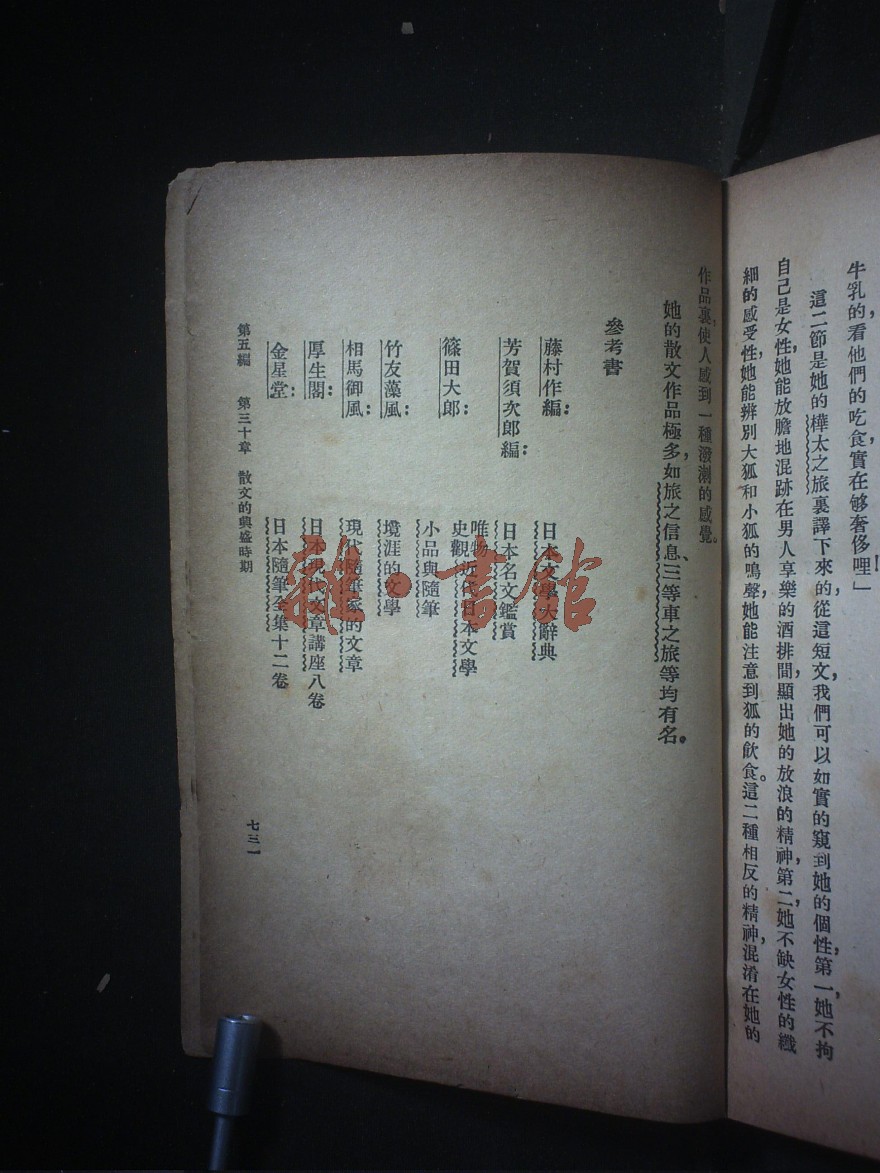 牛乳的看他們的吃食，實在够奢侈哩」
這二節是她的樺太之旅裏譯下來的，從這短文，我們可以如實的窺到她的個性，第一，她不拘
自己是女性，她能放膽地混跡在男人享樂的酒排間，顯出她的放浪的精神，第二，她不缺女性的纖
細的感受性，她能辨別大狐和小狐的鳴聲，她能注意到狐的飲食。這二種相反的精神，混淆在她的
作品裏，使人感到一種潑溂的感覺。
她的散文作品極多，如旅之信息、三等車之旅等均有名。
參考書
藤村作編： 日本文學大辭典
芳賀須次郎編： 日本名文鑑賞
篠田大郎： 唯物史觀近代日本文學
小品與隨筆
竹友藻風： 境涯的文學
相馬御風： 現代隨筆家的文章
厚生閣： 日本現代文章講座八卷
金星堂： 日本隨筆全集十二卷
第五編 第三十章 散文的興盛時期
七三一
龍·書館